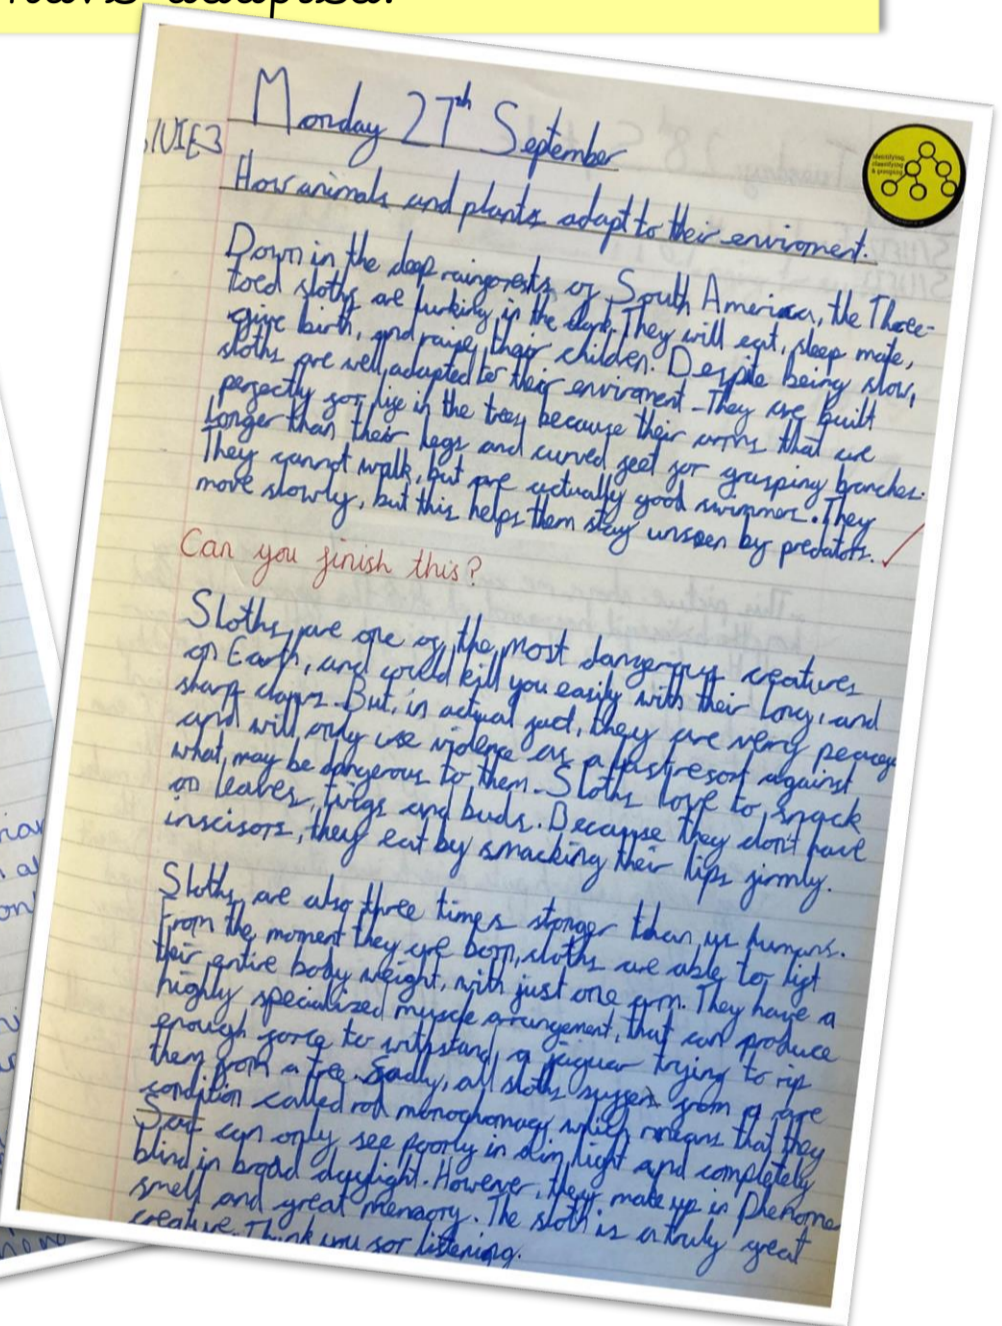 have adapted.
SIUIE3
Monday 27th September
identifying, classifying & grouping
How animals and plants adapt to their enviroment.
Down in the deep rainforests of South America, the Three-
toed sloths are lurking in the dark. They will eat, sleep mate,
give birth, and raise their children. Despite being slow,
sloths are well adapted to their enviroment. They are built
perfectly for life in the trees because their arms that are
longer than their legs and curved feet for grasping branches.
They cannot walk, but are actually good swimmers. They
move slowly, but this helps them stay unseen by predators.
Can you finish this?
Sloths are one of the most dangerous creatures
on Earth, and could kill you easily with their long, and
sharp claws. But, in actual fact, they are very peacef
and will only use violence as a last resort against
what may be dangerous to them. Sloths love to snack
on leaves, twigs and buds. Because they don't have
inscisors, they eat by smacking their lips firmly.
Sloths are also three times stronger than us humans.
From the moment they are born, sloths are able to lift
their entire body weight, with just one arm. They have a
highly specialized muscle arrangement, that can produce
enough force to withstand a jaguar trying to rip
them from a tree. Sadly, all sloths suffer from a rare
condition called rod monochomacy which means that they
can only see poorly in dim light and completely
blind in broad daylight. However, they make up in phenome
smell and great memory. The sloth is a truly great
creature. Thank you for listening.